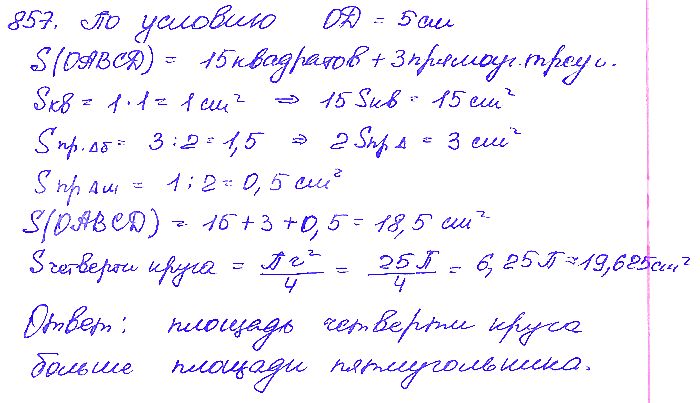 857. По условию OD = 5 см
S(OABCD) = 15 квадратов + 3 прямоуг. треуг.
Sкв = 1 · 1 = 1 см² ⇒ 15 Sкв = 15 см²
Sпр.Δб = 3 : 2 = 1,5 ⇒ 2 Sпр Δ = 3 см²
Sпр Δм = 1 : 2 = 0,5 см²
S(OABCD) = 15 + 3 + 0,5 = 18,5 см²
Sчетверти круга = Пr²/4 = 25П/4 = 6,25П ≈ 19,625 см²
Ответ: площадь четверти круга
больше площади пятиугольника.